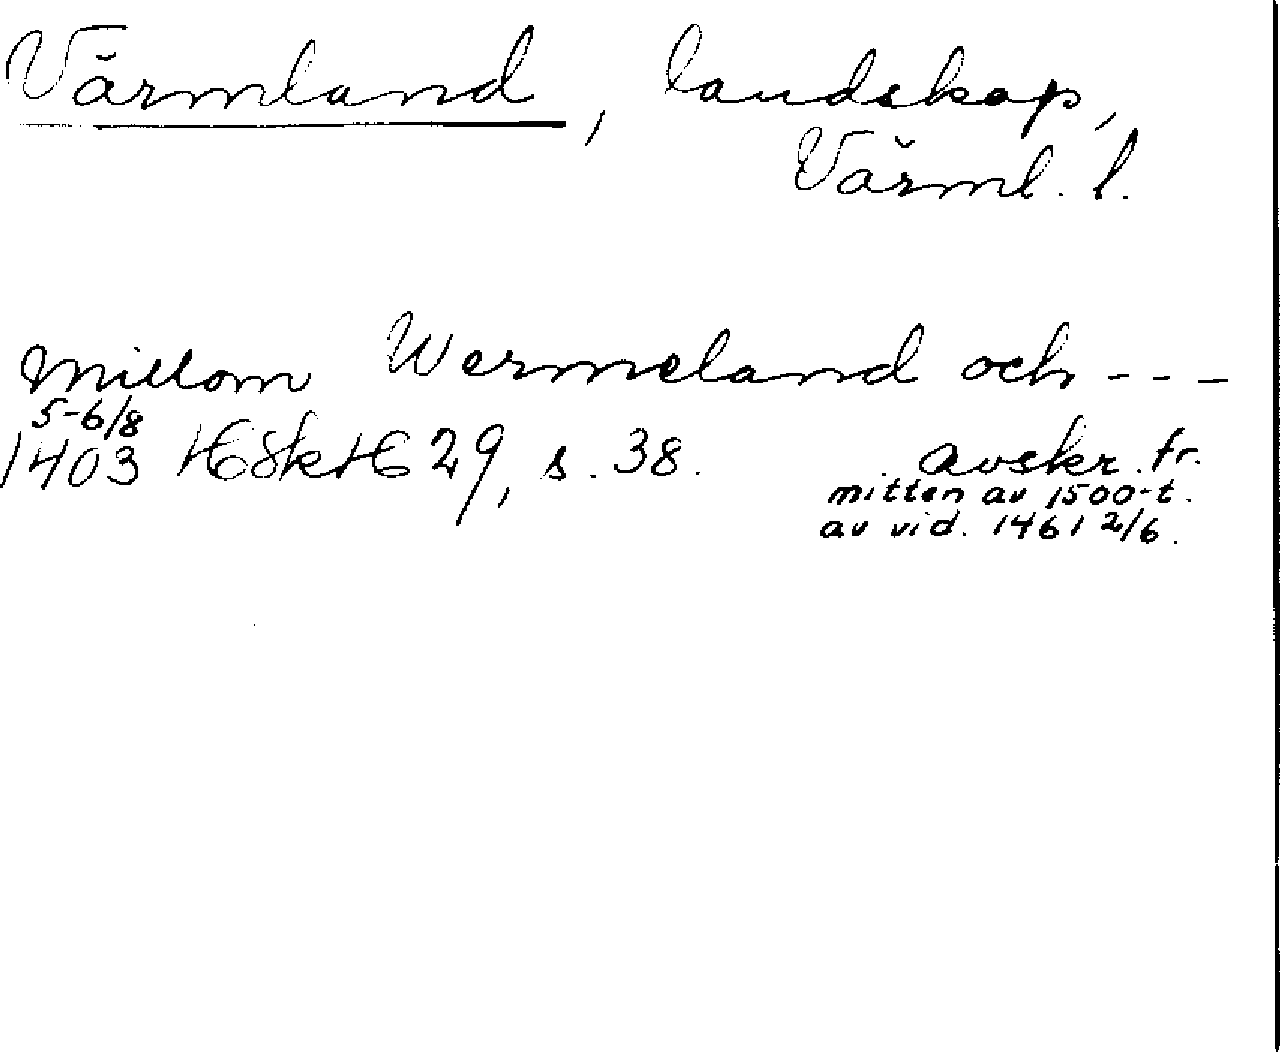 Värmland, landskap,
Värml. l.
Millom Wermeland och ---
5-6/8
1403 HSkH 29, s. 38. avskr. fr.
mitten av 1500-t.
av vid. 1461 2/6.